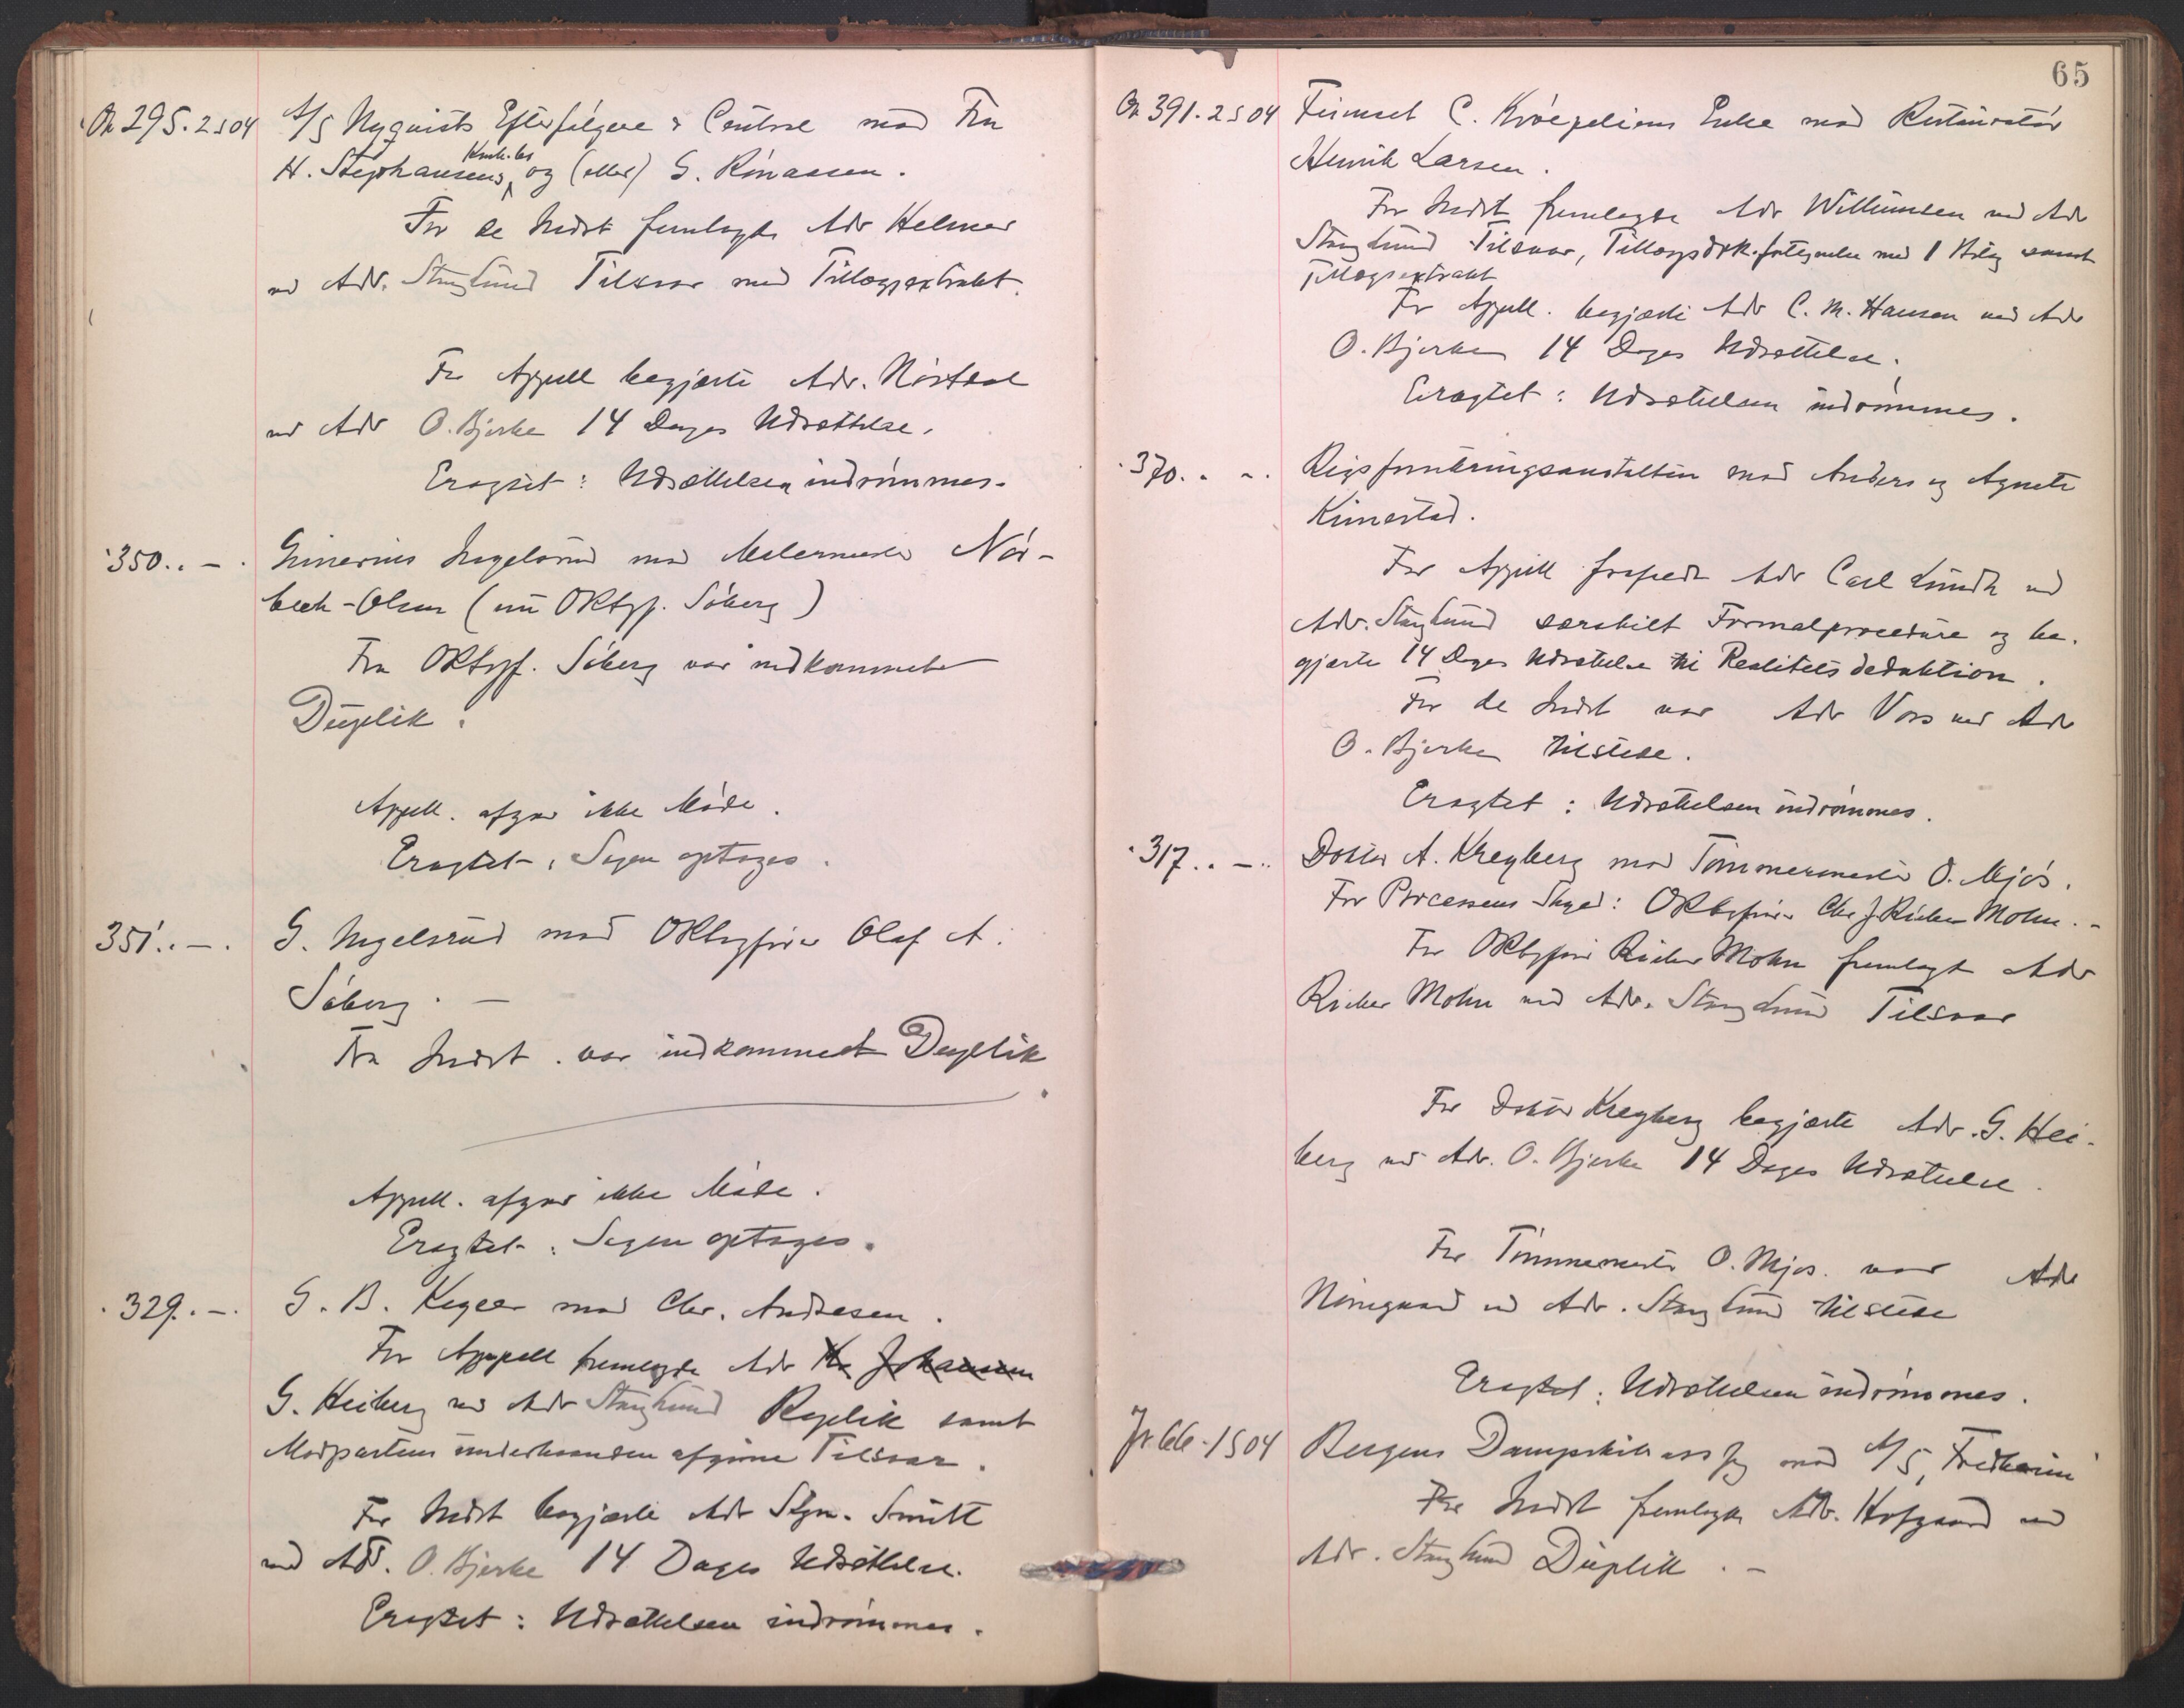 An 295. 2 S 04 A/S Nyquists Efterfølgere & Central mod Fru
H. Stephansens Konk.bo og (eller) S. Rönassen.
For de Indst fremlagde Adv Helmer
ved Adv. Stang Lund Tilsvar med Tillægsextrakt.
For Appell begjærte Adv. Nörstad
ved Adv O. Bjerke 14 Dages Udsættelse.
Eragtet: Udsættelsen indrømmes.
350. . — . Gunerius Ingelsrud mod Malermester Nör-
bech-Olsen (nu ORtspf. Söberg)
Fra ORtspf. Söberg var indkommet
Düplik.
Appell. afgav ikke Møde.
Eragtet: Sagen optages.
351. . — . G. Ingelsrud mod ORtsgfører Olaf A.
Söberg. —
Fra Indst. var indkommet Duplik
Appell. afgav ikke Møde.
Eragtet: Sagen optages.
329. . — . G. B. Keyser mod Chr. Andresen.
For Appell fremlagde Adv Kr Johansen
G. Heiberg ved Adv Stang Lund Replik samt
Modpartens underhaanden afgivne Tilsvar.
For Indst begjærte Adv Sgm. Smitt
ved Adv. O. Bjerke 14 Dages Udsættelse.
Eragtet: Udsættelsen indrømmes.
65
An 391. 2 S 04 Firmaet C. Kröepeliens Enke mod Restauratør
Henrik Larsen.
For Indst fremlagde Adv Willumsen ved Adv
Stang Lund Tilsvar, Tillægsdok.fortegnelse med 1 Bilag samt
Tillægsextrakt
For Appell. begjærte Adv C. M. Hansen ved Adv
O. Bjerke 14 Dages Udsættelse.
Eragtet: Udsættelsen indrømmes.
370. . — . Rigsforsikringsanstalten mod Anders og Agnete
Kinnestad.
For Appell Adv Carl Lundh ved
Adv. Stang Lund særskilt Formalprocedure og be-
gjærte 14 Dages Udsættelse til Realitetsdeduktion.
For de Indst var Adv Vors ved Adv
O. Bjerke tilstede.
Eragtet: Udsættelsen indrømmes.
317. . — . Doktor A. Kreyberg mod Tømmermester O. Mjös.
For Processens Skyld: ORtsfører Chr J. Richer Mohn. -
For ORtsfører Richer Mohn fremlagde Adv
Richer Mohn ved Adv. Stang Lund Tilsvar
For Doktor Kreyberg begjærte Adv. G. Hei-
berg ved Adv. O. Bjerke 14 Dages Udsættelse.
For Tømmermester O. Mjös. var Adv
Nörregaard ved Adv. Stang Lund tilstede
Eragtet: Udsættelsen indrømmes.
Jr 66-1 S 04 Bergens Dampskibsassfg mod A/S „Fredheim"
For Indst fremlagde Adv. Hofgaard ved
Adv. Stang Lund Düplik. —